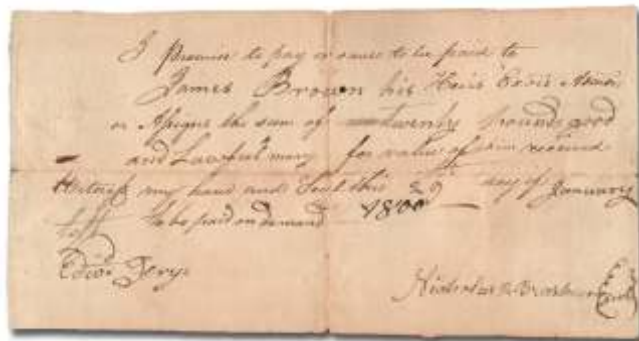 I promise to pay or cause to be paid to
James Brown his Heirs Exors Admrs
or Assigns the sum of twenty pounds good
and Lawful mony for value of him received
Witness my hand and Seal this 29 day of January
to be paid on demand 1800
Nicholas